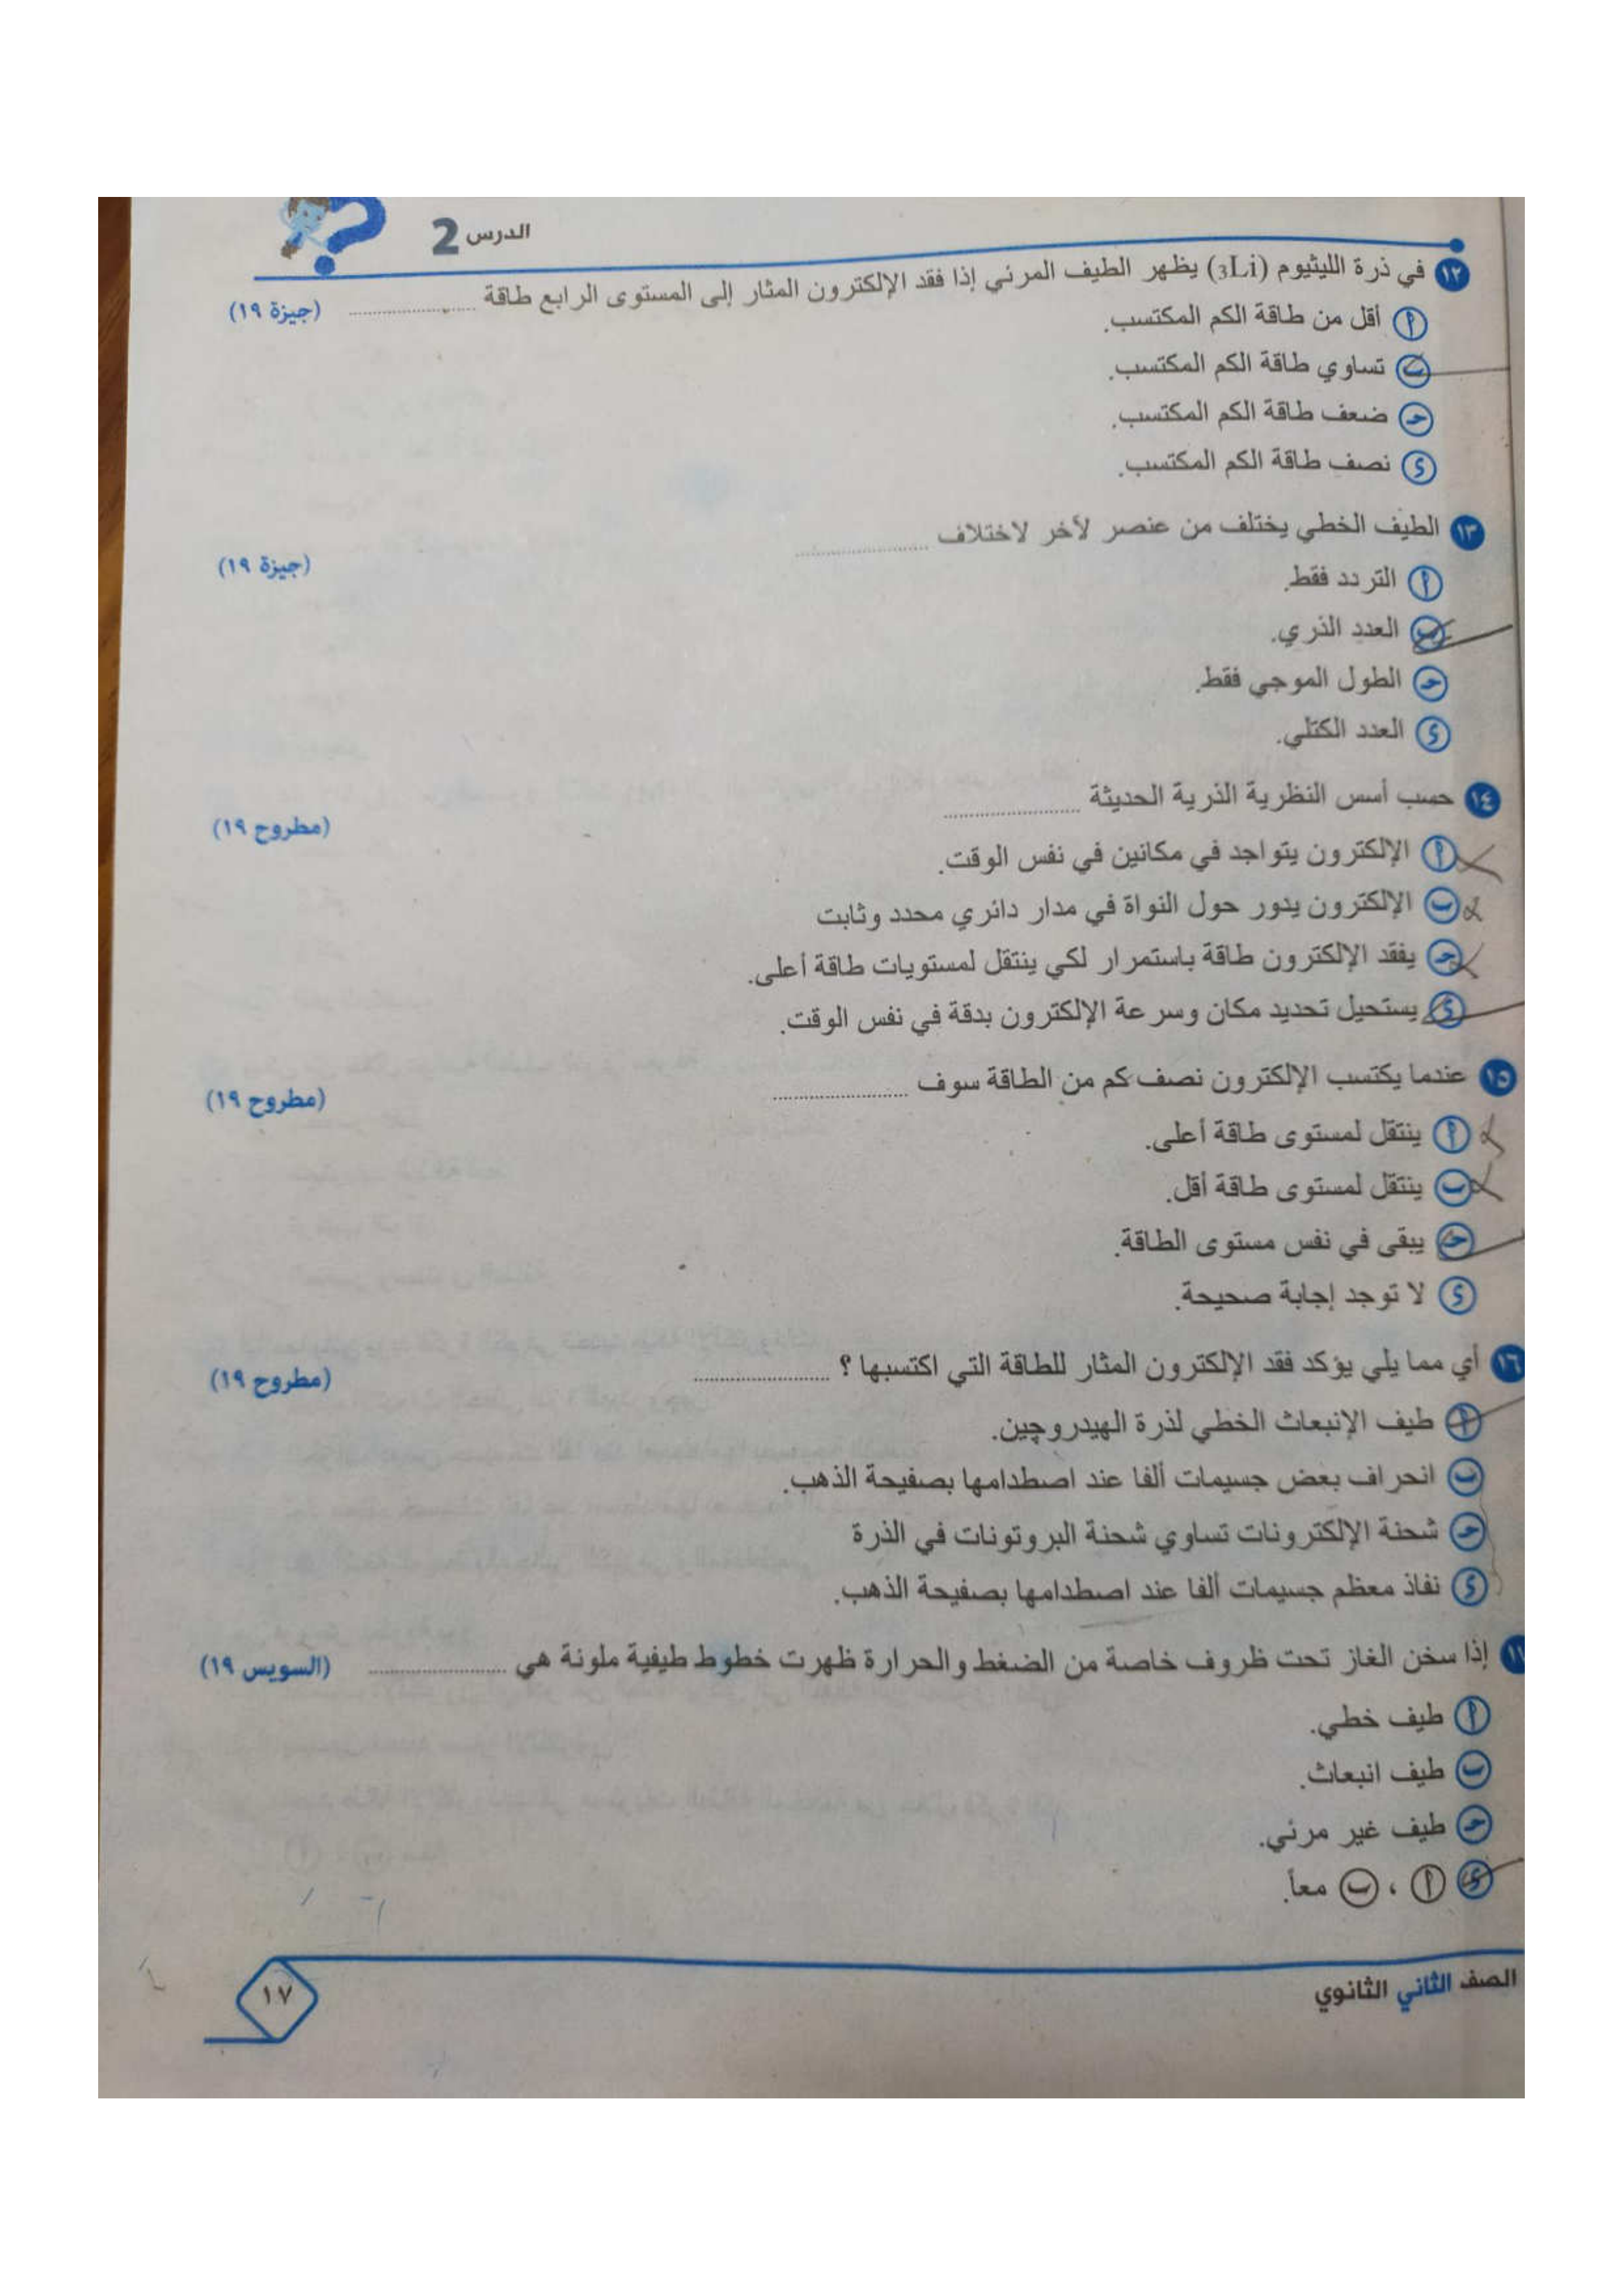 الدرس 2
١٢ في ذرة الليثيوم (₃Li) يظهر الطيف المرئي إذا فقد الإلكترون المثار إلى المستوى الرابع طاقة .................... (جيزة ١٩)
أ أقل من طاقة الكم المكتسب.
ب تساوي طاقة الكم المكتسب.
جـ ضعف طاقة الكم المكتسب.
د نصف طاقة الكم المكتسب.
١٣ الطيف الخطي يختلف من عنصر لآخر لاختلاف .................... (جيزة ١٩)
أ التردد فقط.
ب العدد الذري.
جـ الطول الموجي فقط.
د العدد الكتلي.
١٤ حسب أسس النظرية الذرية الحديثة .................... (مطروح ١٩)
أ الإلكترون يتواجد في مكانين في نفس الوقت.
ب الإلكترون يدور حول النواة في مدار دائري محدد وثابت
جـ يفقد الإلكترون طاقة باستمرار لكي ينتقل لمستويات طاقة أعلى.
د يستحيل تحديد مكان وسرعة الإلكترون بدقة في نفس الوقت.
١٥ عندما يكتسب الإلكترون نصف كم من الطاقة سوف .................... (مطروح ١٩)
أ ينتقل لمستوى طاقة أعلى.
ب ينتقل لمستوى طاقة أقل.
جـ يبقى في نفس مستوى الطاقة.
د لا توجد إجابة صحيحة.
١٦ أي مما يلي يؤكد فقد الإلكترون المثار للطاقة التي اكتسبها ؟ .................... (مطروح ١٩)
أ طيف الإنبعاث الخطي لذرة الهيدروچين.
ب انحراف بعض جسيمات ألفا عند اصطدامها بصفيحة الذهب.
جـ شحنة الإلكترونات تساوي شحنة البروتونات في الذرة
د نفاذ معظم جسيمات ألفا عند اصطدامها بصفيحة الذهب.
إذا سخن الغاز تحت ظروف خاصة من الضغط والحرارة ظهرت خطوط طيفية ملونة هي .................... (السويس ١٩)
أ طيف خطي.
ب طيف انبعاث.
جـ طيف غير مرئي.
د أ ، ب معاً.
الصف الثاني الثانوي
١٧